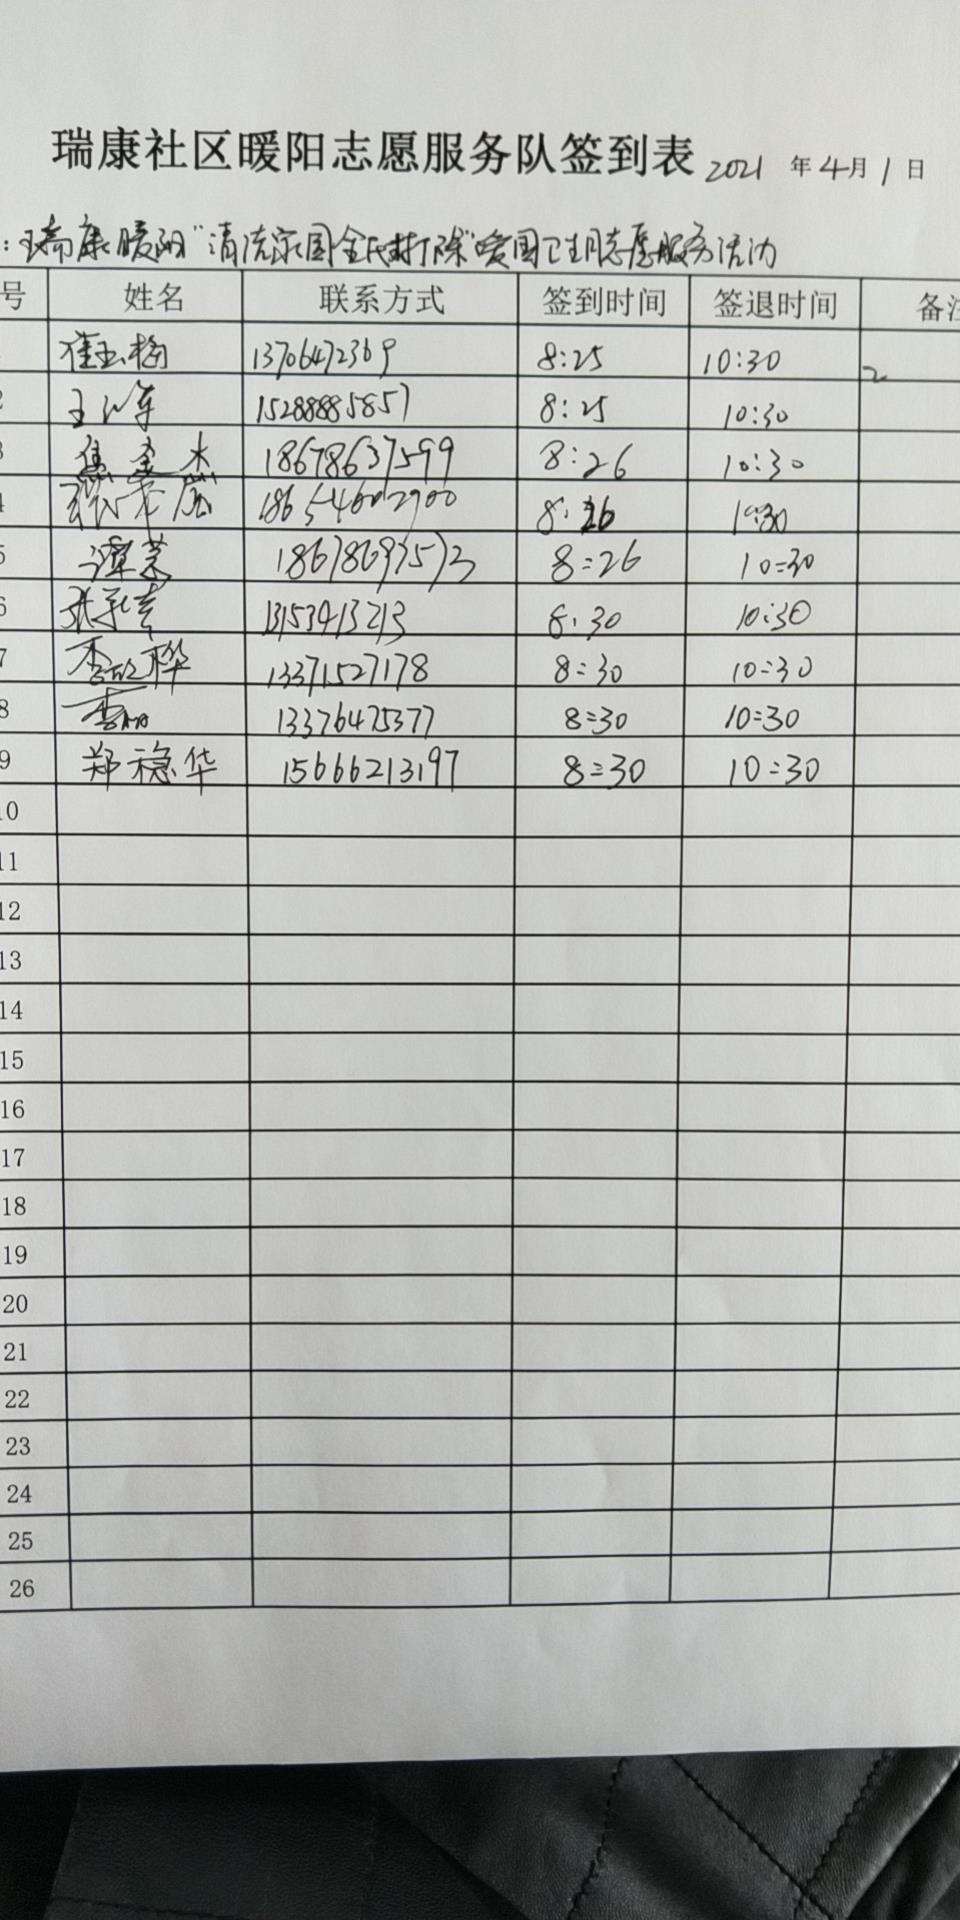 瑞康社区暖阳志愿服务队签到表 2021 年 4 月 1 日
：瑞康暖阳“清洁家园全民打除”爱国卫生月志愿服务活动
号 姓名 联系方式 签到时间 签退时间 备注
崔玉梅 13706472369 8:25 10:30
2 王 军 15288885857 8:25 10:30
3 焦金木 18678637599 8:26 10:30
4 18654602900 8:26 10:30
5 谭英 18678697573 8:26 10:30
6 13153413213 8:30 10:30
7 李欣桦 13371527178 8:30 10:30
8 13376475377 8:30 10:30
9 郑稳华 15666213197 8:30 10:30
10
11
12
13
14
15
16
17
18
19
20
21
22
23
24
25
26